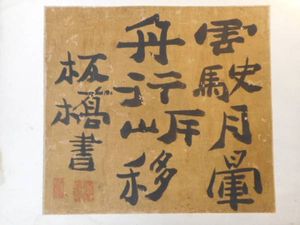 雲駛月暈
舟行岸移
板橋書